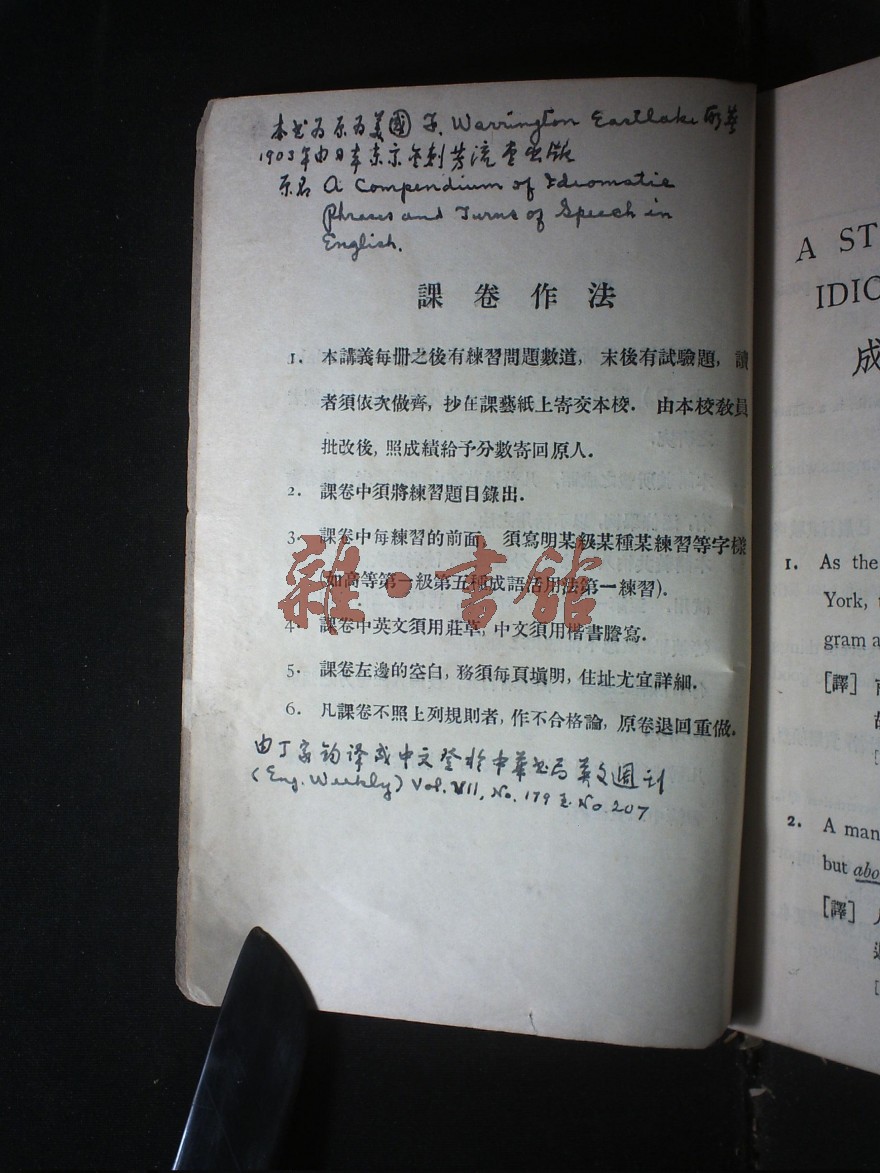 本书为原为美國 F. Warrington Eastlake 所著
1905年由日本東京 芳流堂出版
原名 A Compendium of Idiomatic
Phrases and Turns of Speech in
English.
課卷作法
1. 本講義每册之後有練習問題數道，末後有試驗題，讀
者須依次做齊，抄在課藝紙上寄交本校．由本校敎員
批改後，照成績給予分數寄回原人．
2. 課卷中須將練習題目錄出．
3. 課卷中每練習的前面，須寫明某級某種某練習等字樣
(如高等第一級第五種成語活用法第一練習)．
雜·書館
4. 課卷中英文須用莊草，中文須用楷書謄寫．
5. 課卷左邊的空白，務須每頁塡明，住址尤宜詳細．
6. 凡課卷不照上列規則者，作不合格論，原卷退回重做．
由丁家 译成中文登於中華书局英文週刊
(Eng. Weekly) Vol. VII, No. 179 至 No. 207
A ST
IDIO
成
1. As the
York,
gram a
[譯]
2. A man
but abo
[譯]